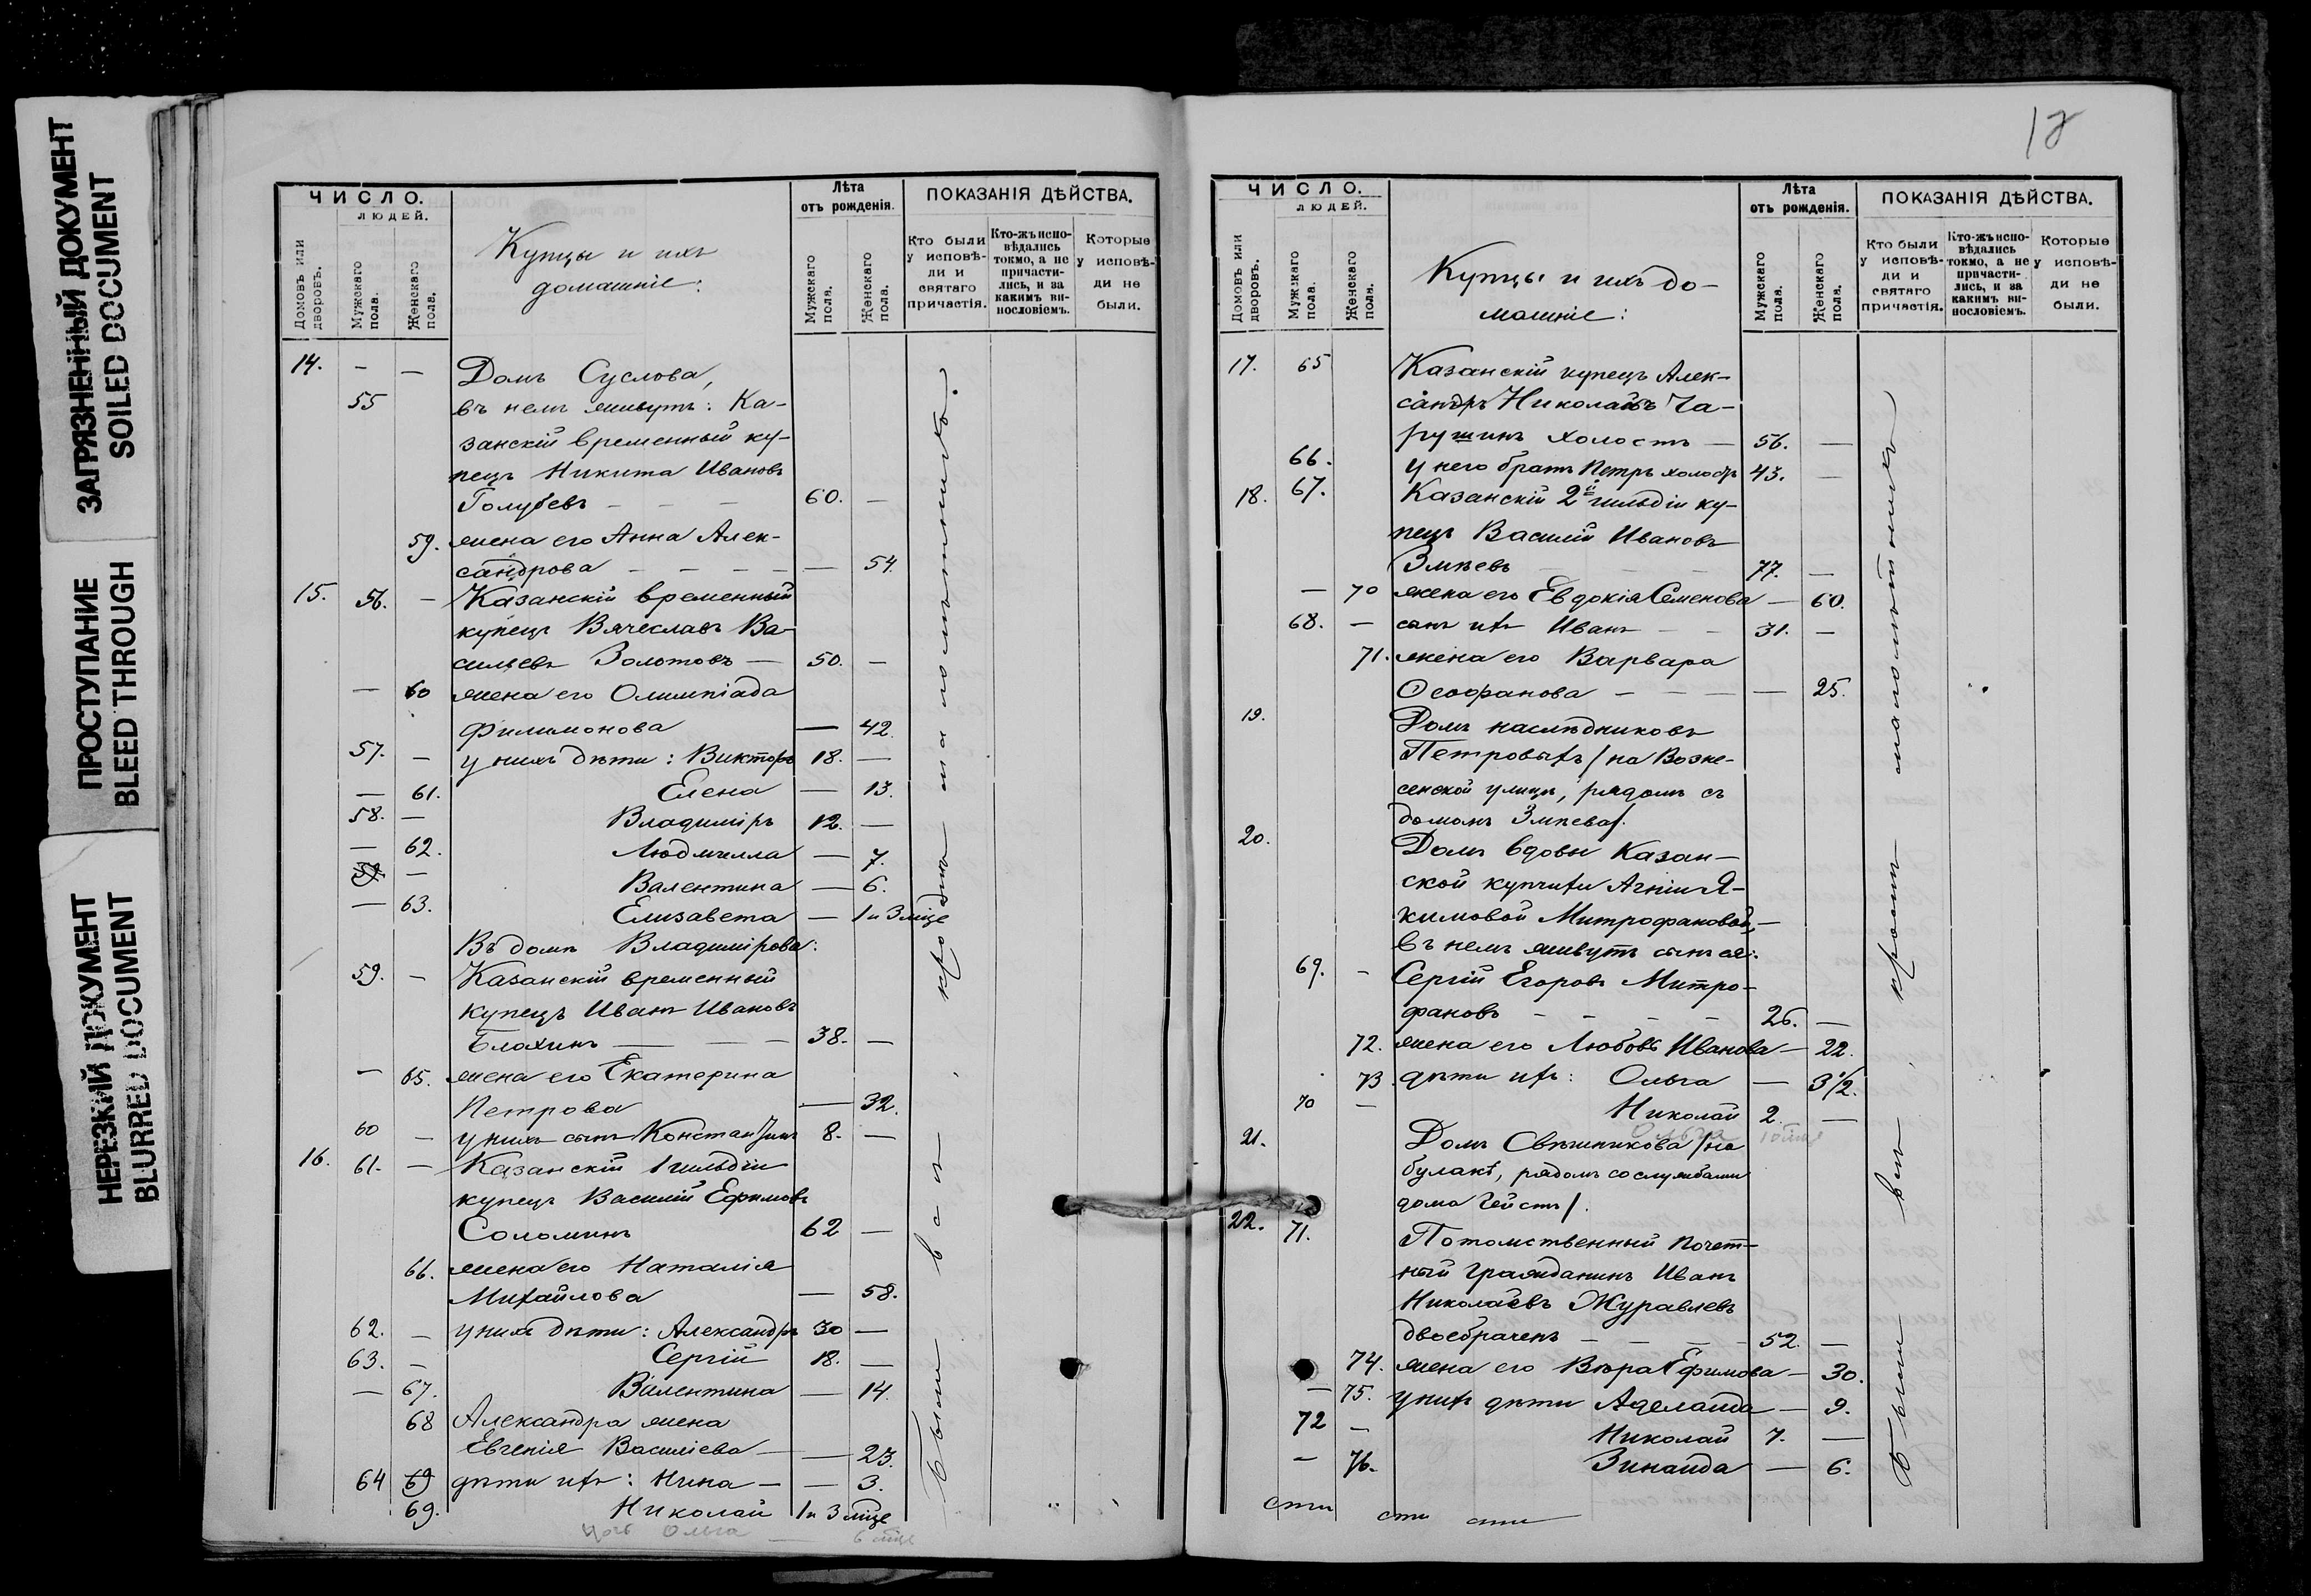 ЗАГРЯЗНЕННЫЙ ДОКУМЕНТ
SOILED DOCUMENT
ПРОСТУПАНИЕ
BLEED THROUGH
НЕРЕЗКИЙ ДОКУМЕНТ
BLURRED DOCUMENT
ЧИСЛО.
ЛЮДЕЙ.
Домовъ или дворовъ.
Мужскаго пола.
Женскаго пола.
Купцы и ихъ
домашніе:
Лѣта
отъ рожденія.
Мужскаго пола.
Женскаго пола.
ПОКАЗАНІЯ ДѢЙСТВА.
Кто были у исповѣ-ди и святаго причастія.
Кто-жъ испо-вѣдались токмо, а не причасти-лись, и за какимъ ви-нословіемъ.
Которые у исповѣ-ди не были.
14. — — Домъ Суслова,
55 въ немъ живутъ: Ка-
занскій временный ку-
пецъ Никита Ивановъ
Голубевъ — — — 60. —
59. жена его Анна Алек-
сандрова — — — — — 54.
15. 56. — Казанскій временный
купецъ Вячеславъ Ва-
сильевъ Золотовъ — 50. —
— 60 жена его Олимпіада
Филимонова — 42.
57. — у нихъ дѣти: Викторъ 18. —
— 61. Елена — 13.
58. — Владиміръ 12. —
— 62. Людмилла — 7.
59. — Валентина — 6.
— 63. Елизавета — 1 и 3 мѣс
Въ домѣ Владимірова:
59. — Казанскій временный
купецъ Иванъ Ивановъ
Блохинъ — — — 38. —
— 65. жена его Екатерина
Петрова — 32.
60 — у нихъ сынъ Константинъ 8. —
16. 61. — Казанскій 1 гильдіи
купецъ Василій Ефимовъ
Соломинъ 62 —
66. жена его Наталія
Михайлова — 58.
62. — у нихъ дѣти: Александръ 30 —
63. — Сергій 18. —
— 67. Валентина — 14.
68 Александра жена
Евгенія Василіева — — 23.
64 69 дѣти ихъ: Нина — — 3.
69. Николай 1 и 3 мѣс
Ольга — 6 мѣс
Были все
18
ЧИСЛО.
ЛЮДЕЙ.
Домовъ или дворовъ.
Мужскаго пола.
Женскаго пола.
Купцы и ихъ до-
машніе:
Лѣта
отъ рожденія.
Мужскаго пола.
Женскаго пола.
ПОКАЗАНІЯ ДѢЙСТВА.
Кто были у исповѣ-ди и святаго причастія.
Кто-жъ испо-вѣдались токмо, а не причасти-лись, и за какимъ ви-нословіемъ.
Которые у исповѣ-ди не были.
17. 65 Казанскій купецъ Алек-
сандръ Николаевъ Ча-
рушинъ холостъ — 56. —
66. у него братъ Петръ холостъ 43. —
18. 67. Казанскій 2й гильдіи ку-
пецъ Василій Ивановъ
Змѣевъ — — 77. —
— 70 жена его Евдокія Семенова — 60.
68. — сынъ ихъ Иванъ — — 31. —
71. жена его Варвара
Ѳеофанова — — — — 25.
19. Домъ наслѣдниковъ
Петровыхъ / на Возне-
сенской улицѣ, рядомъ съ
домомъ Змѣева/.
20. Домъ вдовы Казан-
ской купчихи Агніи Я-
кимовой Митрофановой,
въ немъ живутъ сынъ ея:
69. — Сергій Егоровъ Митро-
фановъ — — — — 26. —
72. жена его Любовь Иванова — 22.
73 дѣти ихъ: Ольга — 3 1/2.
70 — Николай 2. —
21. Домъ Свѣшникова /на
булакѣ, рядомъ со службами
дома Гейстъ/.
22. 71. Потомственный Почет-
ный Гражданинъ Иванъ
Николаевъ Журавлевъ
двоебраченъ — — — 52. —
74. жена его Вѣра Ефимова — 30.
— 75. у нихъ дѣти Аделаида — 9.
72 — Николай 7. —
— 76. Зинаида — 6.
Были все кромѣ малолѣтнихъ